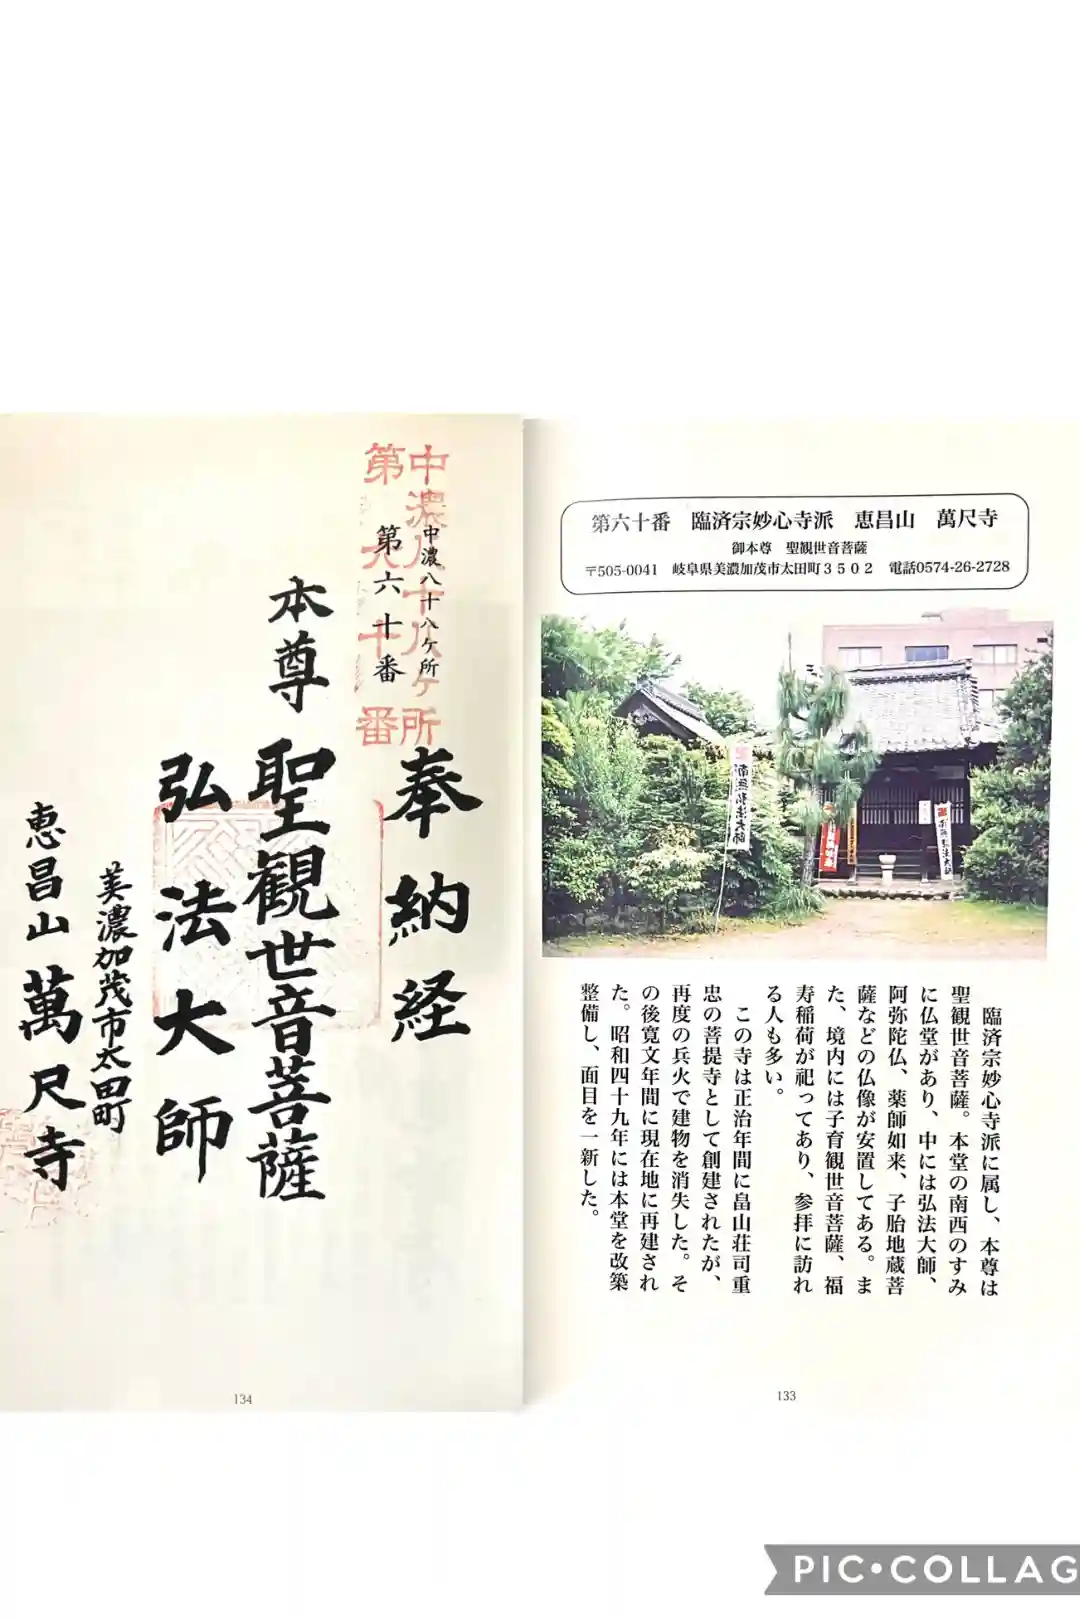 第六十番　臨済宗妙心寺派　恵昌山　萬尺寺
御本尊　聖観世音菩薩
〒505-0041　岐阜県美濃加茂市太田町３５０２　電話0574-26-2728
南無弘法大師
南無弘法大師
臨済宗妙心寺派に属し、本尊は
聖観世音菩薩。本堂の南西のすみ
に仏堂があり、中には弘法大師、
阿弥陀仏、薬師如来、子胎地蔵菩
薩などの仏像が安置してある。ま
た、境内には子育観世音菩薩、福
寿稲荷が祀ってあり、参拝に訪れ
る人も多い。
この寺は正治年間に畠山荘司重
忠の菩提寺として創建されたが、
再度の兵火で建物を消失した。そ
の後寛文年間に現在地に再建され
た。昭和四十九年には本堂を改築
整備し、面目を一新した。
133
中濃八十八ヶ所
第六十番
中濃八十八ヶ所
第六十番
奉納経
本尊　聖観世音菩薩
弘法大師
美濃加茂市太田町
恵昌山萬尺寺
134
PIC•COLLAG